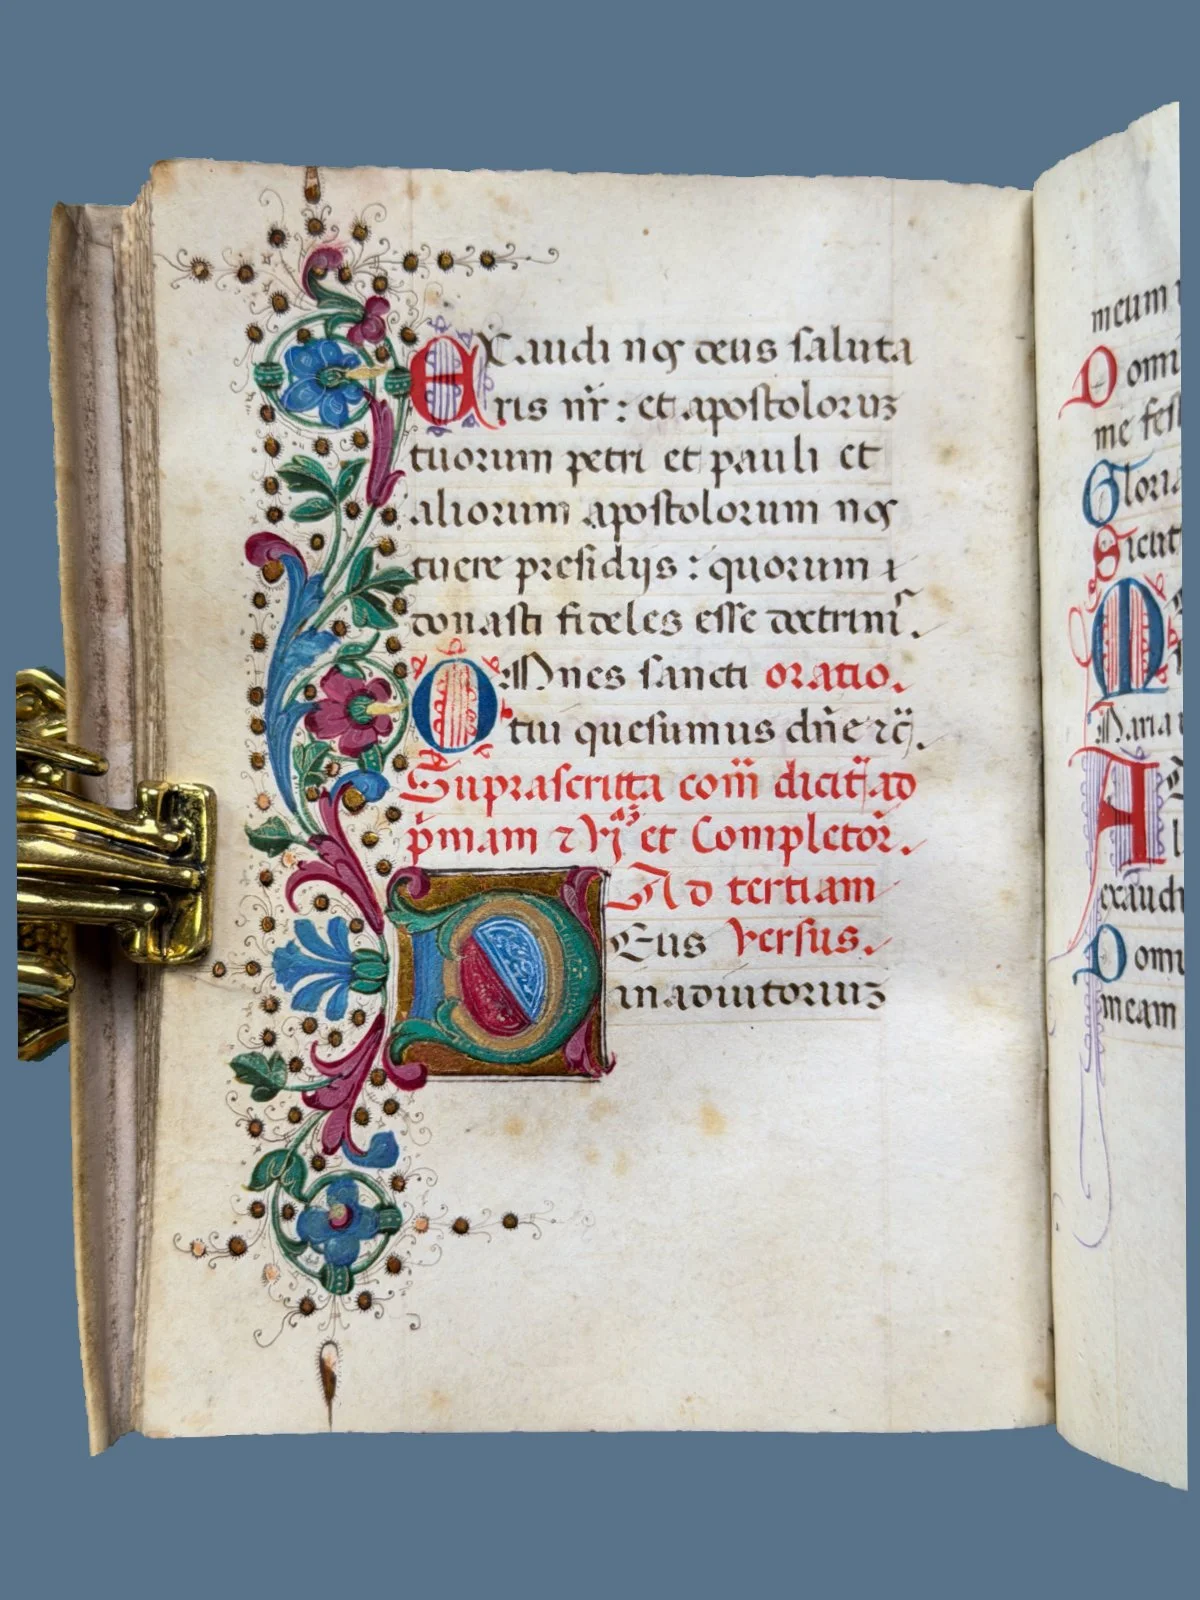 EXaudi nos deus saluta
ris nr̄ : et apostoloruʒ
tuorum petri et pauli et
aliorum apostolorum nos
tuere presidijs : quorum
donasti fideles esse doctrinis.
OMnes sancti oratio.
tui quesumus dn̄e ⁊c̄.
Suprascritta com̄ dicit̄ ad
p̄mam ⁊ vjaʒ et Completor̄.
Ad tertiam
DEus versus.
in adiutoriuʒ
meum
Domi
me fes
Gloria
Sicut
Maria
exaudi
Domi
meam